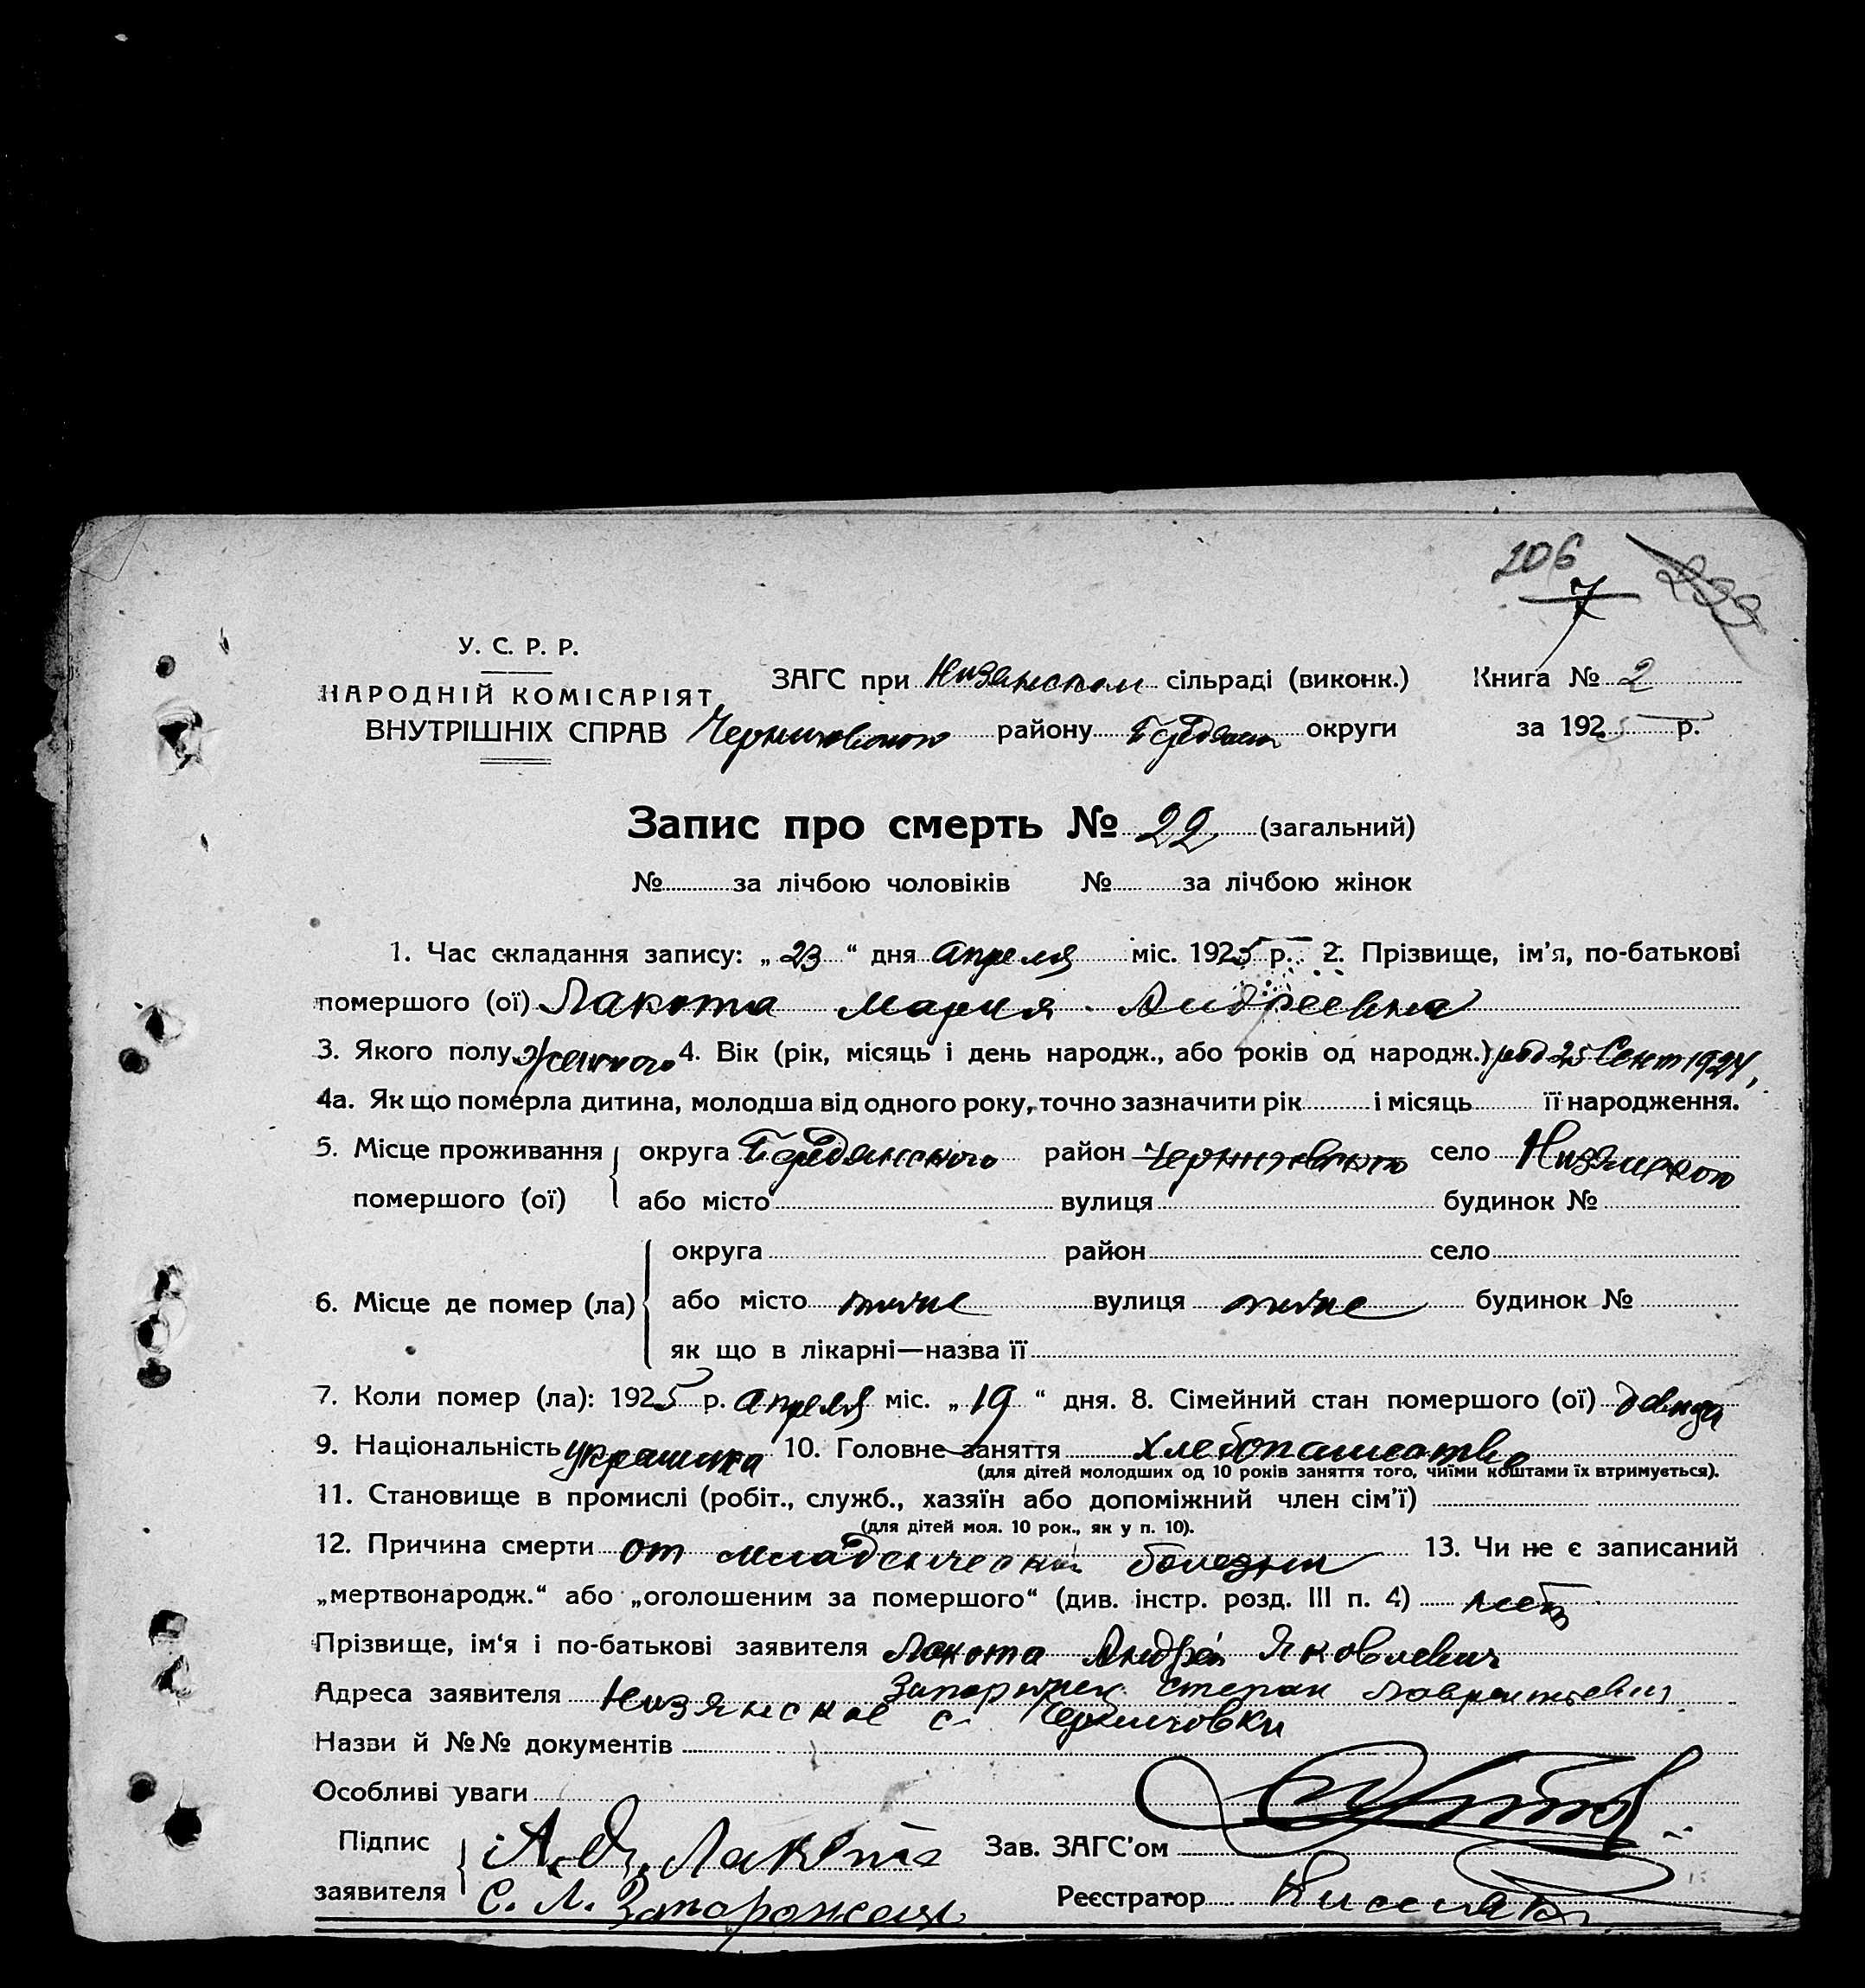 206
7
У. С. Р. Р.
НАРОДНІЙ КОМІСАРІЯТ
ВНУТРІШНІХ СПРАВ
ЗАГС при Низянском сільраді (виконк.) Книга № 2
району округи за 1925 р.
Запис про смерть № 22 (загальний)
№ за лічбою чоловіків № за лічбою жінок
1. Час складання запису: „ 23 “ дня апреля міс. 1925 р. 2. Прізвище, ім'я, по-батькові
помершого (ої) Лакота Мария Андреевна
3. Якого полу женского 4. Вік (рік, місяць і день народж., або років од народж.) 25 Сент 1924,
4а. Як що померла дитина, молодша від одного року, точно зазначити рік і місяць її народження.
5. Місце проживання округа Бердянского район Черниговского село Низянского
помершого (ої) або місто вулиця будинок №
округа район село
6. Місце де помер (ла) або місто вулиця будинок №
як що в лікарні—назва її
7. Коли помер (ла): 1925 р. апреля міс. „ 19 “ дня. 8. Сімейний стан помершого (ої) девица
9. Національність украинка 10. Головне заняття хлебопашество
(для дітей молодших од 10 років заняття того, чиїми коштами їх втримується).
11. Становище в промислі (робіт., служб., хазяїн або допоміжний член сім'ї)
(для дітей мол. 10 рок., як у п. 10).
12. Причина смерти от младенческой болезни 13. Чи не є записаний
„мертвонародж.“ або „оголошеним за помершого“ (див. інстр. розд. III п. 4) нет
Прізвище, ім'я і по-батькові заявителя Лакота Андрей Яковлевич
Запорожец Степан Лаврентьевич
Адреса заявителя Низянское с. Черниговки
Назви й №№ документів
Особливі уваги
Підпис А. Я. Лакота Зав. ЗАГС'ом
заявителя С. Л. Запорожець Реєстратор